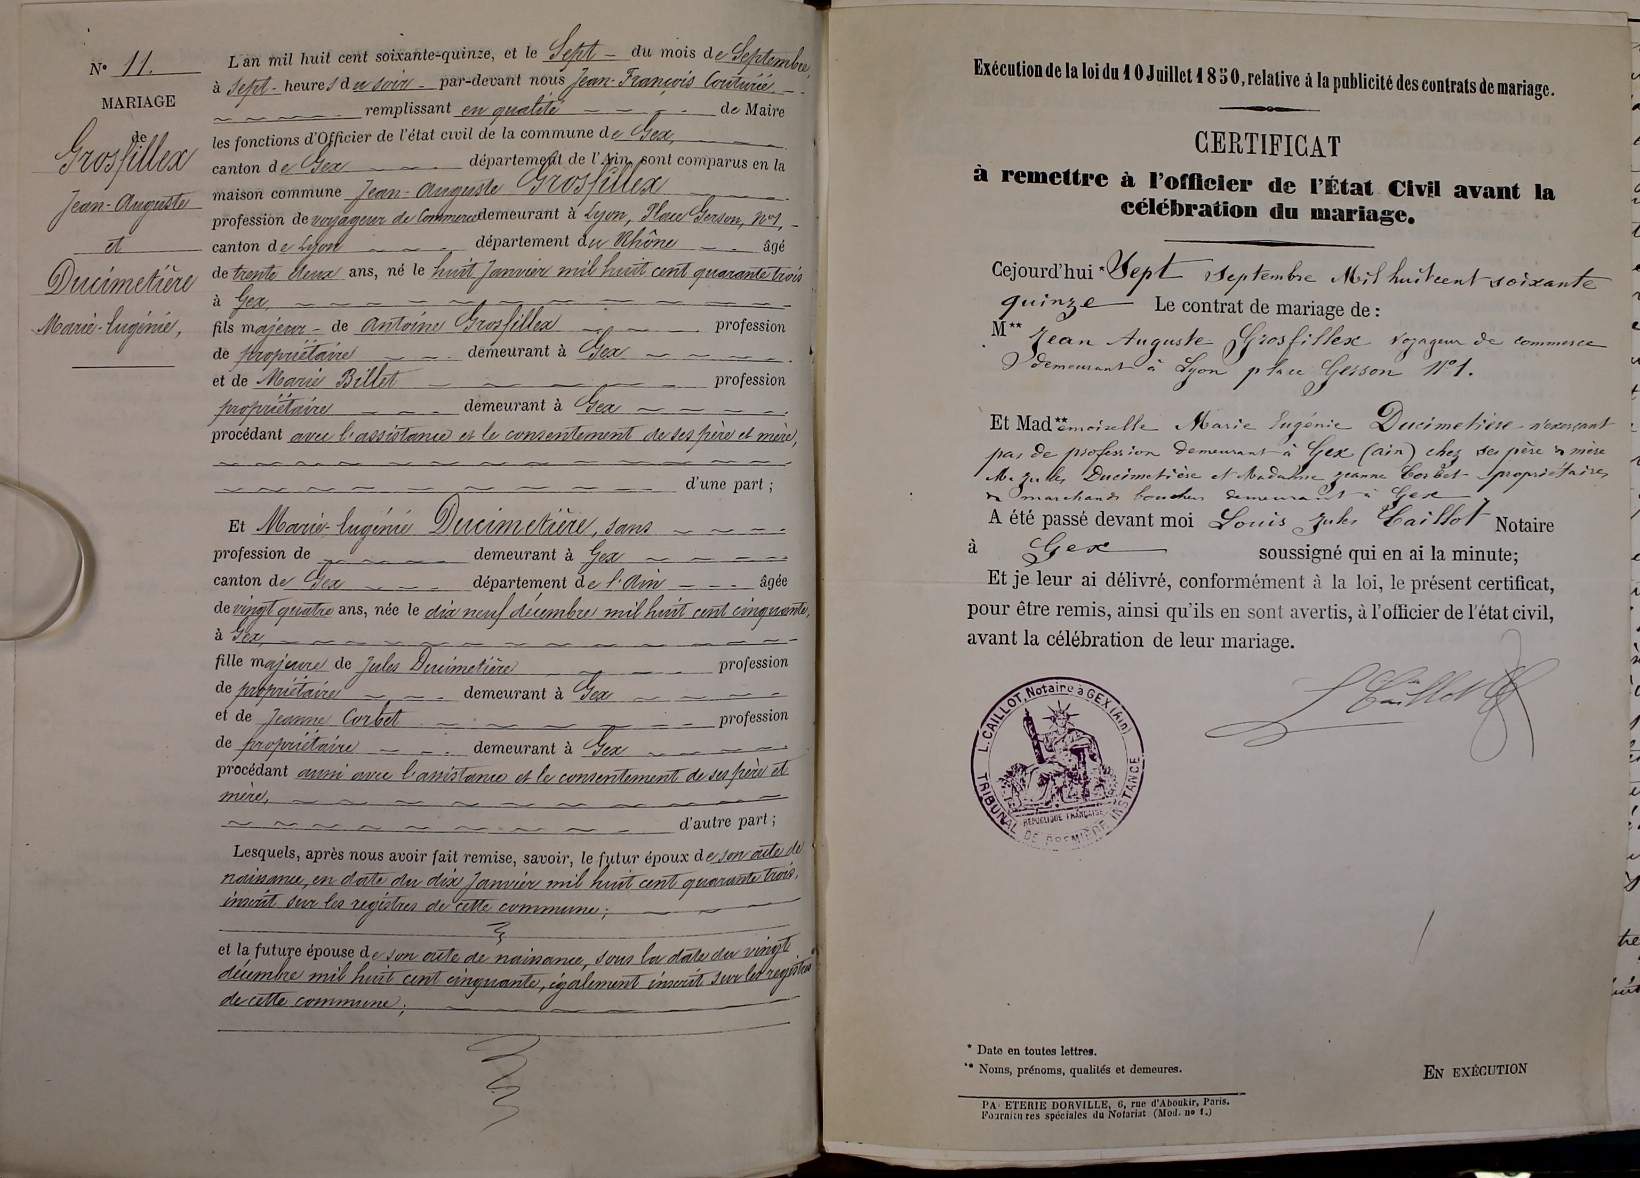 N° 11.
MARIAGE
de
Grosfillex
Jean-Auguste
et
Ducimetière
Marie-Eugénie,
L'an mil huit cent soixante-quinze, et le Sept du mois de Septembre,
à sept heures du soir par-devant nous Jean-François
remplissant en qualité de Maire
les fonctions d'Officier de l'état civil de la commune de Gex,
canton de Gex département de l'Ain, sont comparus en la
maison commune Jean-Auguste Grosfillex
profession de voyageur de Commerce demeurant à Lyon, Place Gerson, N°1,
canton de Lyon département du Rhône âgé
de trente deux ans, né le huit Janvier mil huit cent quarante trois
à Gex,
fils majeur de Antoine Grosfillex profession
de propriétaire demeurant à Gex
et de Marie Billet profession
propriétaire demeurant à Gex
procédant avec l'assistance et le consentement de ses père et mère,
d'une part ;
Et Marie-Eugénie Ducimetière, sans
profession de demeurant à Gex
canton de Gex département de l'Ain âgée
de vingt quatre ans, née le dix neuf décembre mil huit cent cinquante,
à Gex,
fille majeure de Jules Ducimetière profession
de propriétaire demeurant à Gex
et de Jeanne Corbet profession
de propriétaire demeurant à Gex
procédant aussi avec l'assistance et le consentement de ses père et
mère,
d'autre part ;
Lesquels, après nous avoir fait remise, savoir, le futur époux de son acte de
naissance, en date du dix Janvier mil huit cent quarante trois,
inscrit sur les registres de cette commune ;
et la future épouse de son acte de naissance, sous la date du vingt
décembre mil huit cent cinquante, également inscrit sur les registres
de cette commune ;
Exécution de la loi du 10 Juillet 1850, relative à la publicité des contrats de mariage.
CERTIFICAT
à remettre à l'officier de l'État Civil avant la
célébration du mariage.
Cejourd'hui * Sept Septembre Mil huit cent soixante
quinze Le contrat de mariage de :
M** Jean Auguste Grosfillex voyageur de commerce
demeurant à Lyon place Gerson N°1.
Et Mad**emoiselle Marie Eugénie Ducimetière n'exerçant
pas de profession demeurant à Gex (ain) chez ses père & mère
Mr Jules Ducimetière et Madame Jeanne Corbet propriétaires
& marchands bouchers demeurant à Gex
A été passé devant moi Louis Jules Caillot Notaire
à Gex soussigné qui en ai la minute;
Et je leur ai délivré, conformément à la loi, le présent certificat,
pour être remis, ainsi qu'ils en sont avertis, à l'officier de l'état civil,
avant la célébration de leur mariage.
L Caillot
L. CAILLOT, Notaire à GEX (Ain)
TRIBUNAL DE PREMIERE INSTANCE
RÉPUBLIQUE FRANÇAISE
* Date en toutes lettres.
** Noms, prénoms, qualités et demeures.
EN EXÉCUTION
PA ETERIE DORVILLE, 6, rue d'Aboukir, Paris.
Fournitures spéciales du Notariat (Mod. n° 1.)